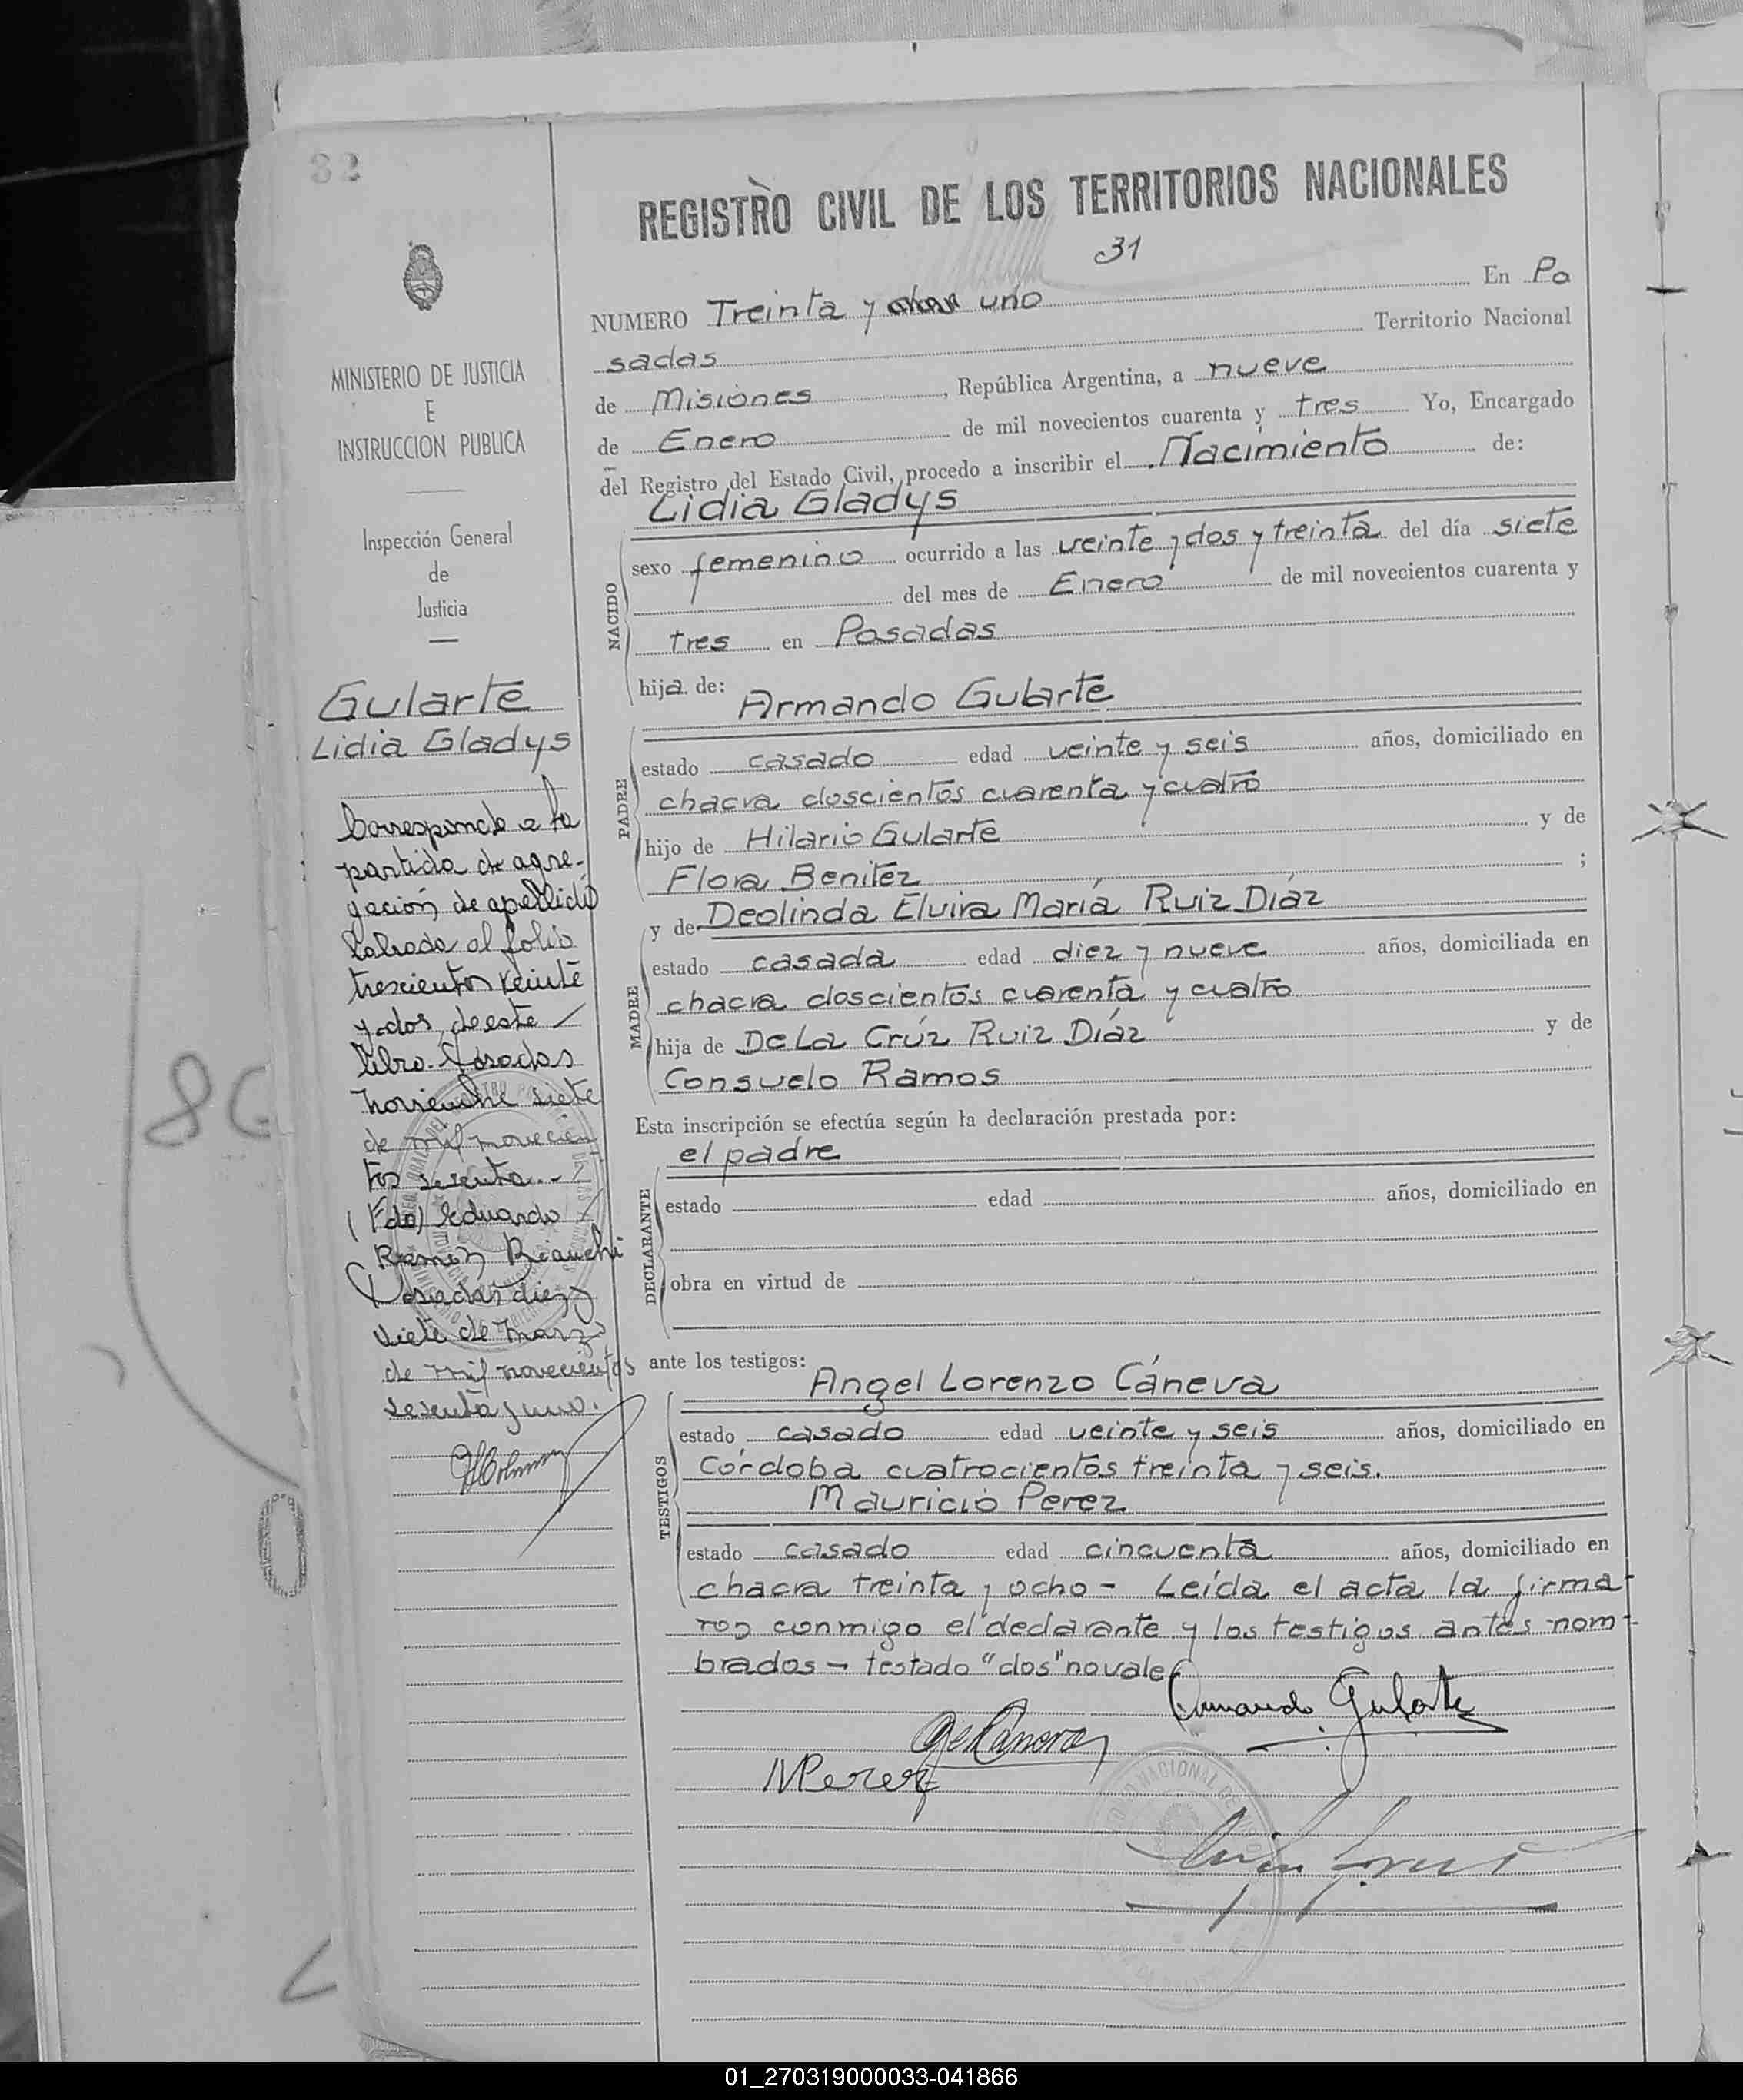 32
REGISTRO CIVIL DE LOS TERRITORIOS NACIONALES
31
NUMERO Treinta y uno En Po
sadas Territorio Nacional
de Misiones, República Argentina, a nueve
de Enero de mil novecientos cuarenta y tres Yo, Encargado
del Registro del Estado Civil, procedo a inscribir el Nacimiento de:
Lidia Gladys
NACIDO
sexo femenino ocurrido a las veinte y dos y treinta del día siete
del mes de Enero de mil novecientos cuarenta y
tres en Posadas
hija de:
Armando Gularte
PADRE
estado casado edad veinte y seis años, domiciliado en
chacra doscientos cuarenta y cuatro
hijo de Hilario Gularte y de
Flora Benitez ;
y de Deolinda Elvira María Ruiz Díaz
MADRE
estado casada edad diez y nueve años, domiciliada en
chacra doscientos cuarenta y cuatro
hija de De La Crúz Ruiz Díaz y de
Consuelo Ramos
Esta inscripción se efectúa según la declaración prestada por:
el padre
DECLARANTE
estado edad años, domiciliado en
obra en virtud de
ante los testigos:
Angel Lorenzo Cáneva
TESTIGOS
estado casado edad veinte y seis años, domiciliado en
Córdoba cuatrocientos treinta y seis.
Mauricio Perez
estado casado edad cincuenta años, domiciliado en
chacra treinta y ocho - Leída el acta la firma
ron conmigo el declarante y los testigos antes nom
brados - testado "dos" no vale
Armando Gularte
MPerez
MINISTERIO DE JUSTICIA
E
INSTRUCCION PUBLICA
Inspección General
de
Justicia
Gularte
Lidia Gladys
Corresponde a la
partida de agre-
gación de apellido
labrada al folio
trescientos veinte
y dos, de este
libro. Posadas
noviembre siete
de mil novecien
tos sesenta.-
(Fdo) Eduardo
Ramón Bianchi
Posadas diez y
siete de marzo
de mil novecientos
sesenta y uno.
01_270319000033-041866